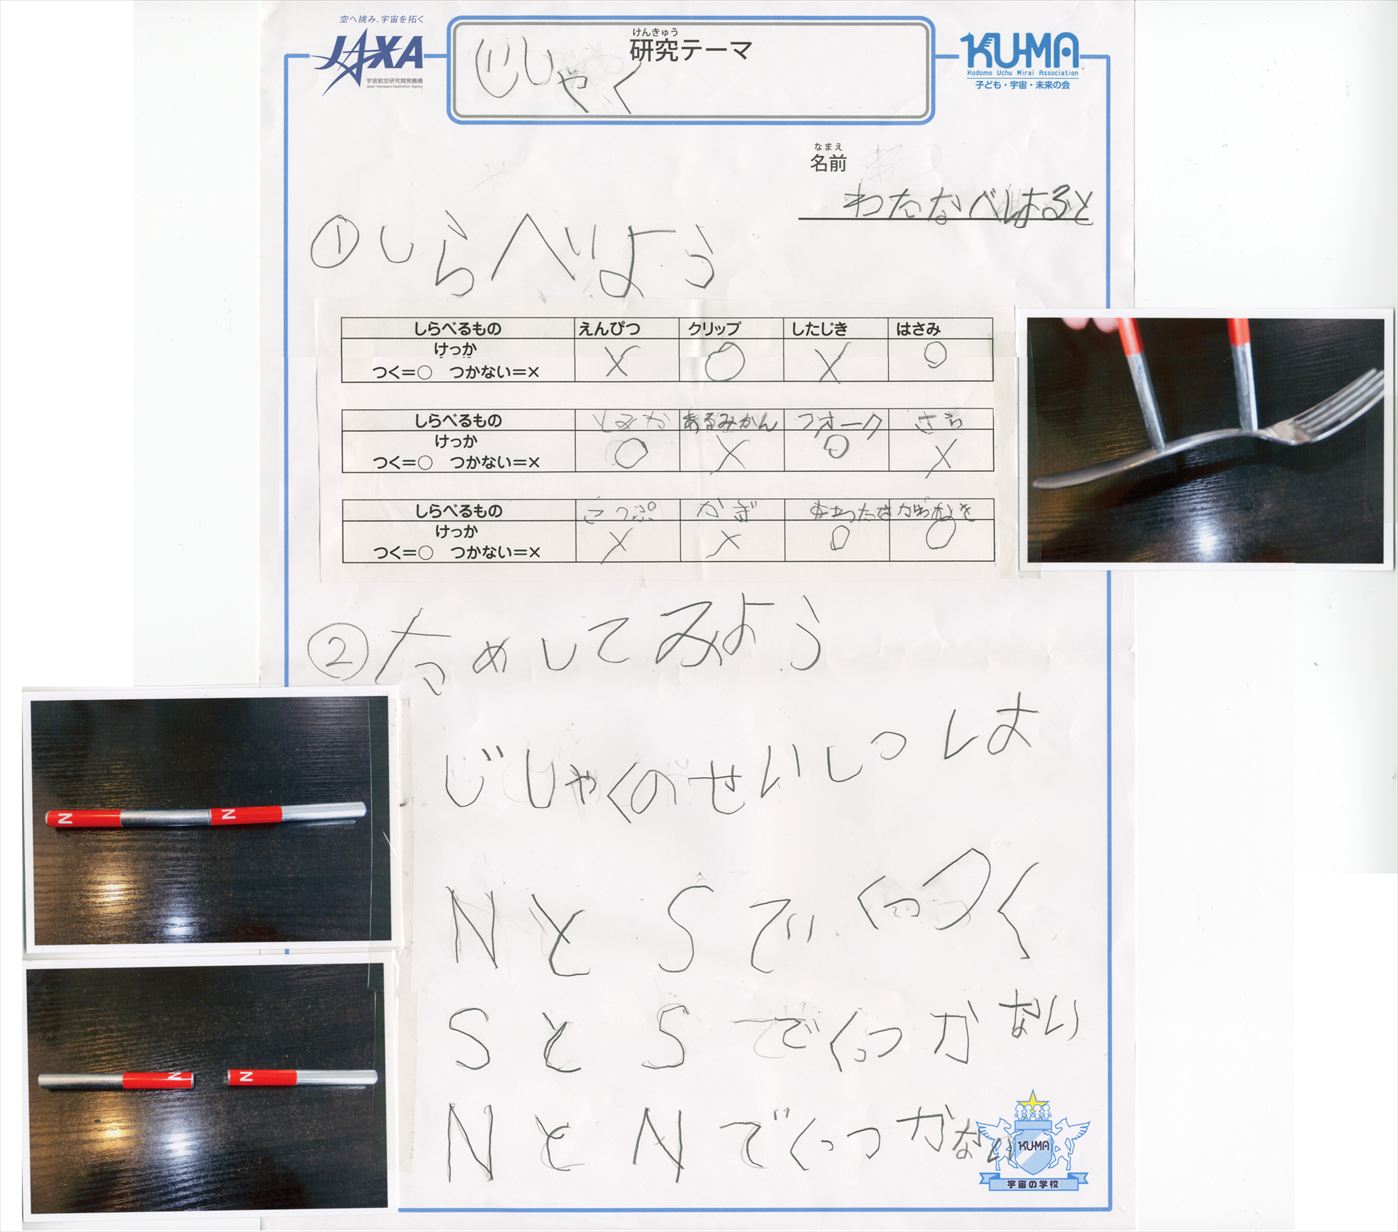 空へ挑み、宇宙を拓く
JAXA
宇宙航空研究開発機構
Japan Aerospace Exploration Agency
けんきゅう
研究テーマ
じしゃく
KU-MA
Kodomo Uchu Mirai Association
子ども・宇宙・未来の会
なまえ
名前
わたなべはると
①しらべよう
しらべるもの えんぴつ クリップ したじき はさみ
けっか
つく=○ つかない=× × ○ × ○
しらべるもの あるみかん フォーク さら
けっか
つく=○ つかない=× ○ × ○ ×
しらべるもの こっぷ かぎ
けっか
つく=○ つかない=× × × ○ ○
②ためしてみよう
じしゃくのせいしつは
NとSでくっつく
SとSでくっつかない
NとNでくっつかない
N N
N N
KU-MA
宇宙の学校